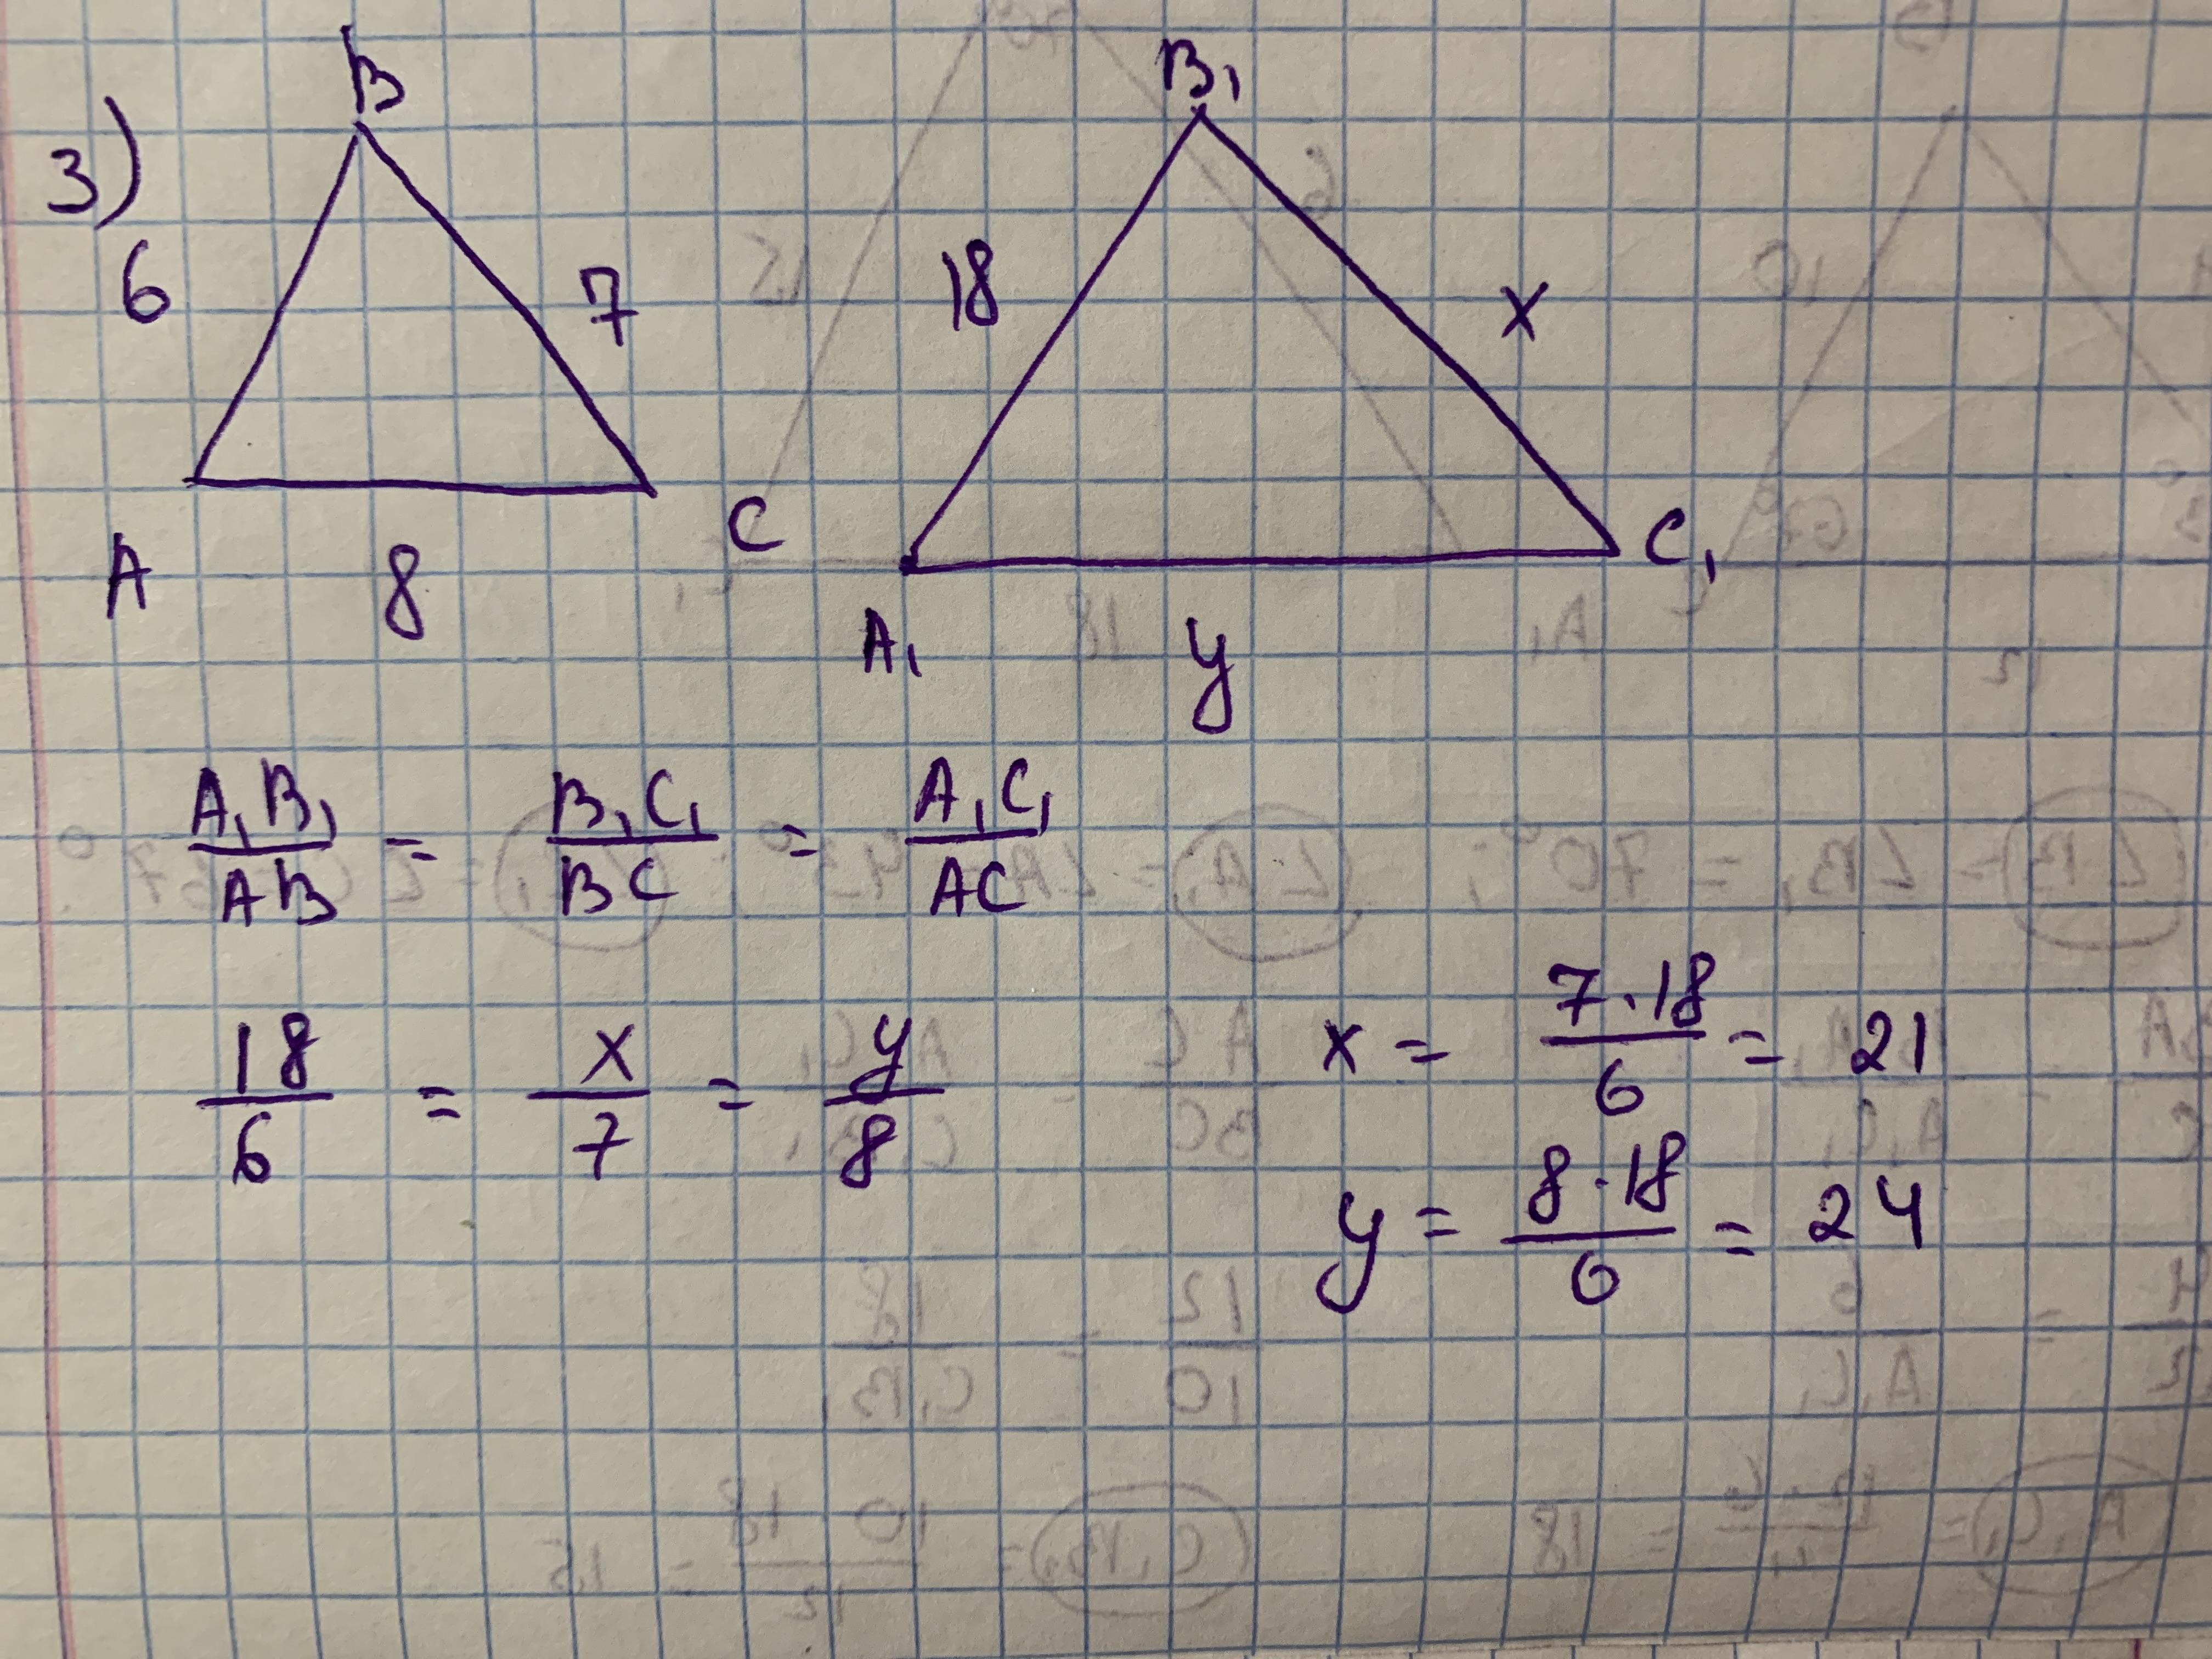 3)
B
6
7
A
8
C
B₁
18
x
A₁
y
C₁
A₁B₁/AB = B₁C₁/BC = A₁C₁/AC
18/6 = x/7 = y/8
x = 7·18/6 = 21
y = 8·18/6 = 24